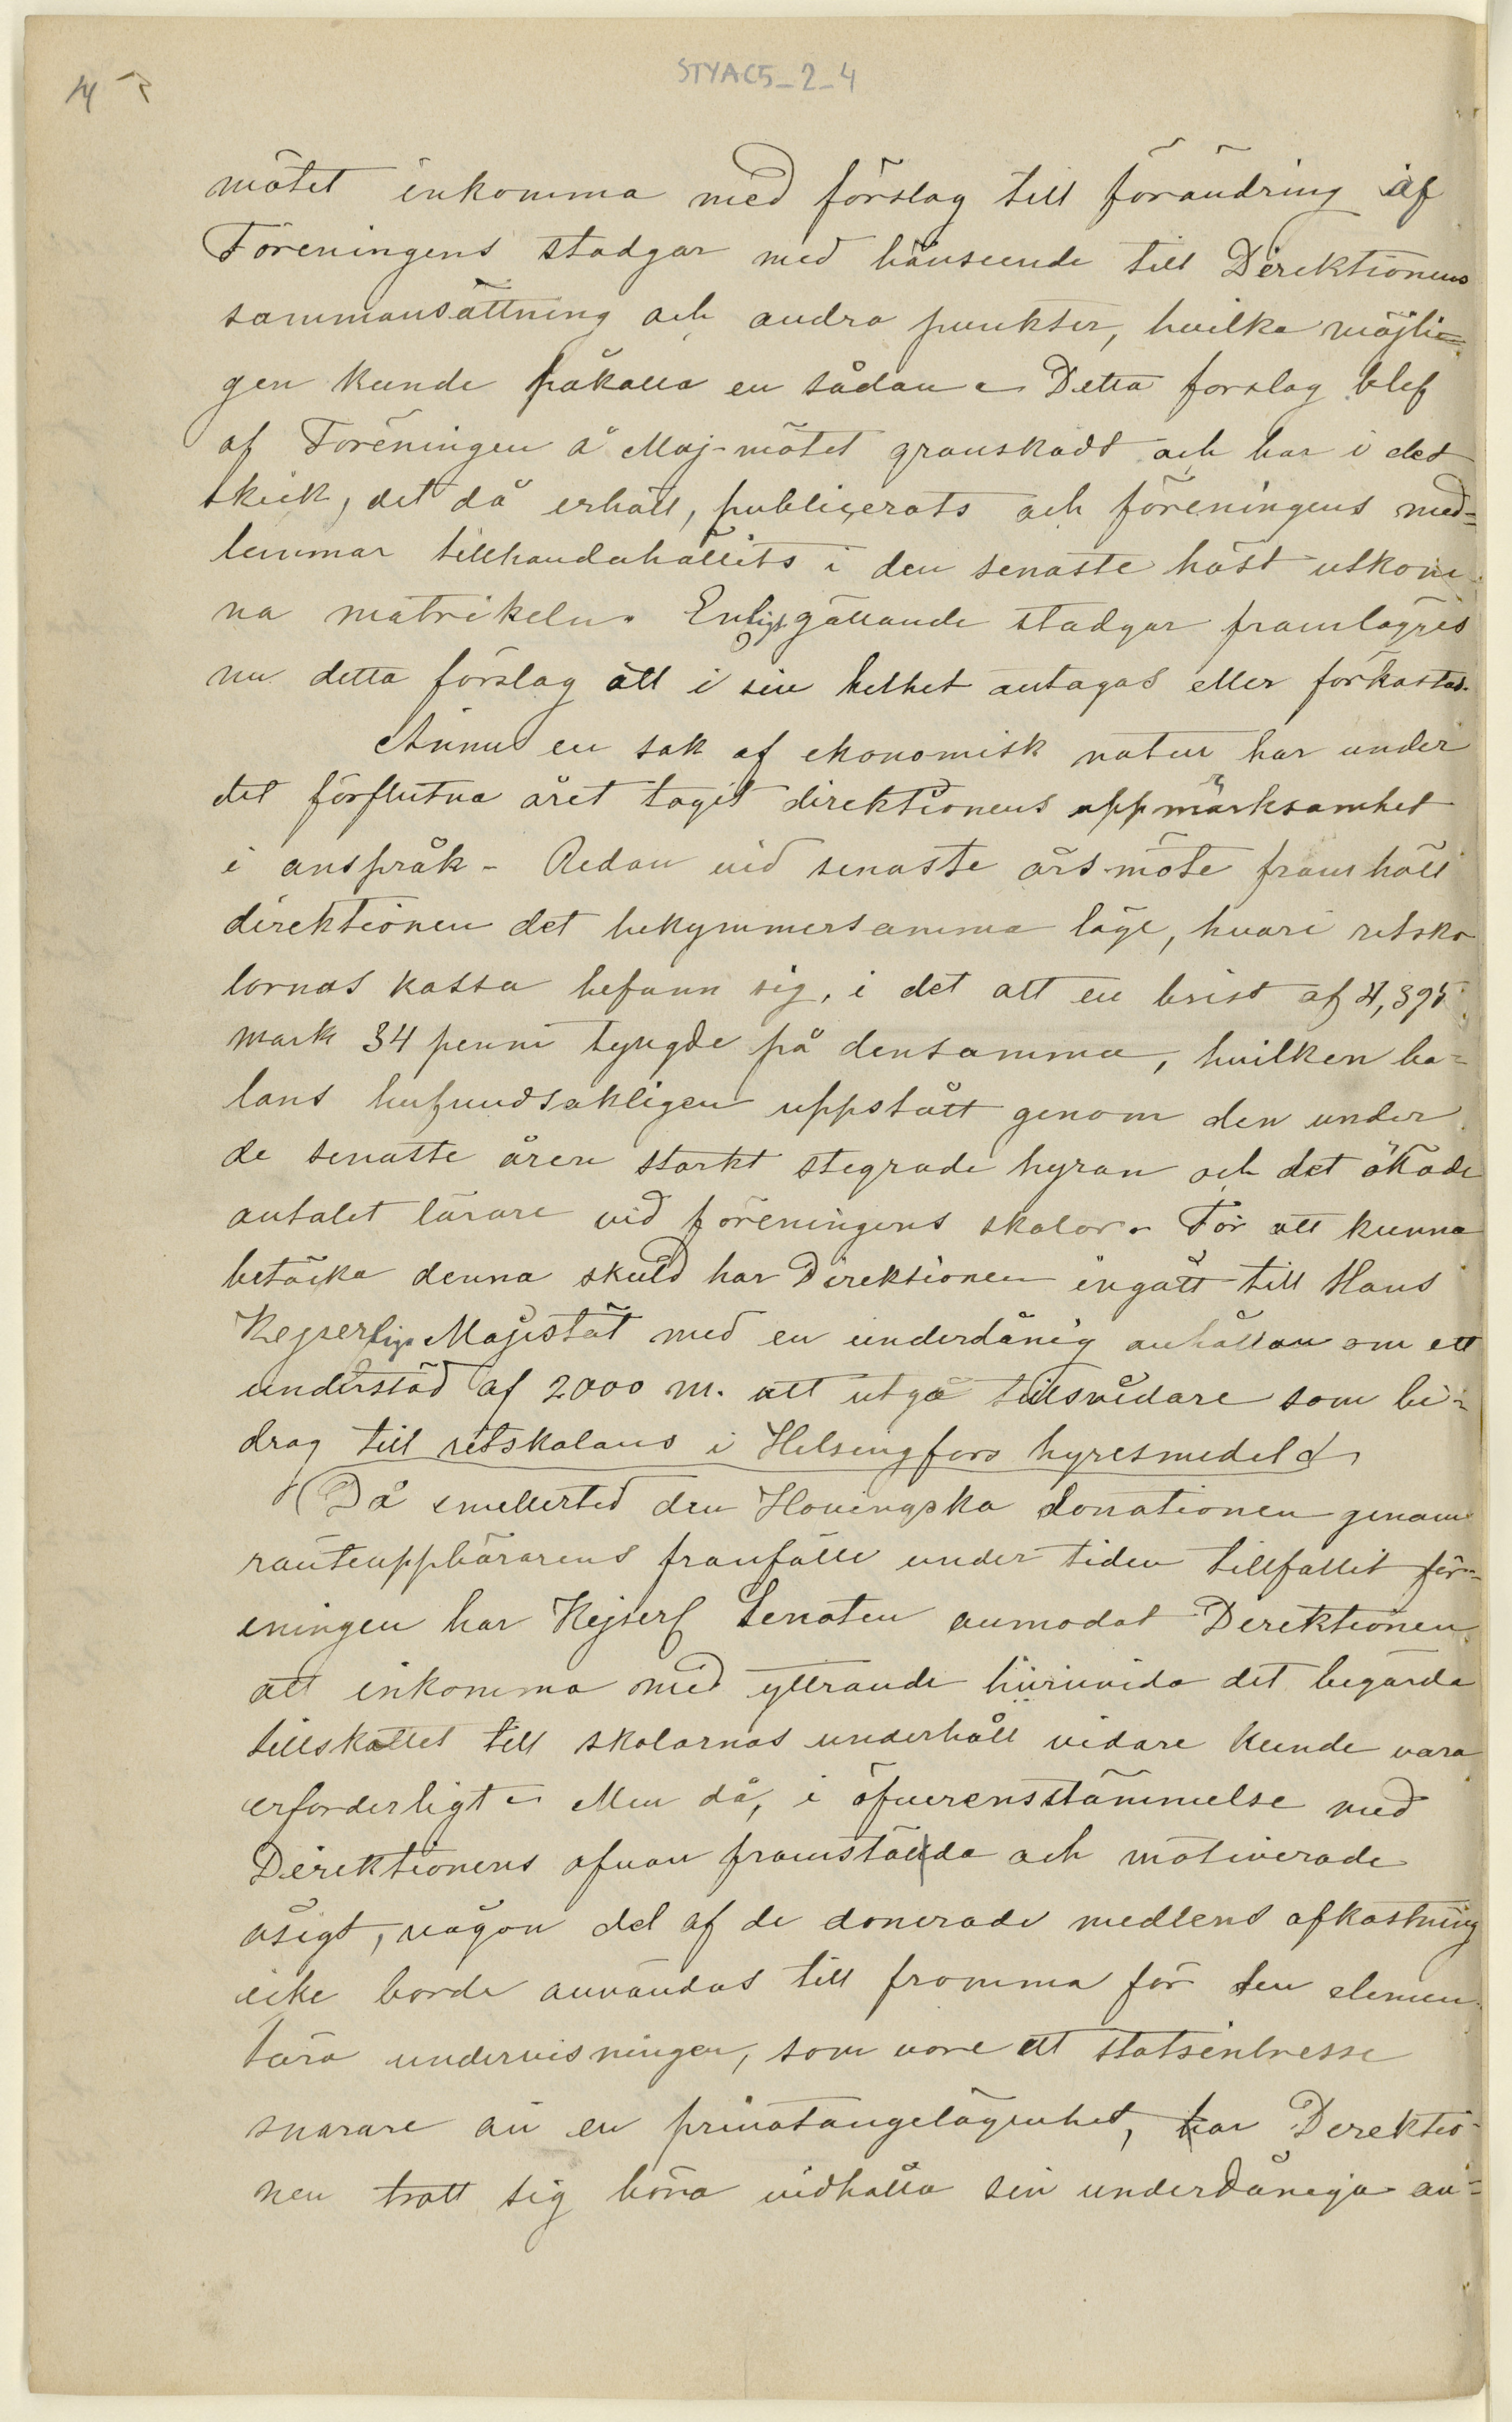 STYAC5_2_4
14
mötet inkomma med förslag till förändring af
Föreningens stadgar med hänseende till Direktionens
sammansättning och andra punkter, hvilka möjli=
gen kunde påkalla en sådan. Detta forslag blef
af Föreningen å Maj-mötet granskadt och har i det
skick, det då erhöll, publicerats och föreningens med=
lemmar tillhandahållits i den senaste höst utkom-
na matrikeln. Enligt gällande stadgar framlägges
nu detta förslag att i sin helhet antagas eller förkastas.
Ännu en sak af ekonomisk natur har under
det förflutna året tagit direktionens uppmärksamhet
i anspråk - Redan vid senaste års-möte framhöll
direktionen det bekymmersamma läge, hvari ritsko
lornas kassa befann sig, i det att en brist af 4,395
mark 34 penni tyngde på densamma, hvilken ba=
lans hufvudsakligen uppstått genom den under
de senaste åren starkt stegrade hyran och det ökade
antalet lärare vid föreningens skolor. För att kunna
betäcka denna skuld har Direktionen ingått till Hans
Kejserlige Majestät med en underdånig anhållan om ett
understöd af 2000 m. att utgå tillsvidare som bi=
drag till ritskolans i Helsingfors hyresmedel
(Då emellertid den Hovingska donationen genom
ränteuppbärarens franfälle under tiden tillfallit för=
eningen har Kejserl Senaten anmodat Direktionen
att inkomma med yttrande huruvida det begärda
tillskottet till skolornas underhåll vidare kunde vara
erforderligt. Men då, i öfverensstämmelse med
Direktionens ofvan framställda och motiverade
åsigt, någon del af de donerade medlens afkastning
icke borde användas till fromma för den elemen
tära undervisningen, som vore ett statsintresse
snarare än en privatangelägenhet, har Direktio=
nen trott sig böra vidhålla sin underdåniga an=